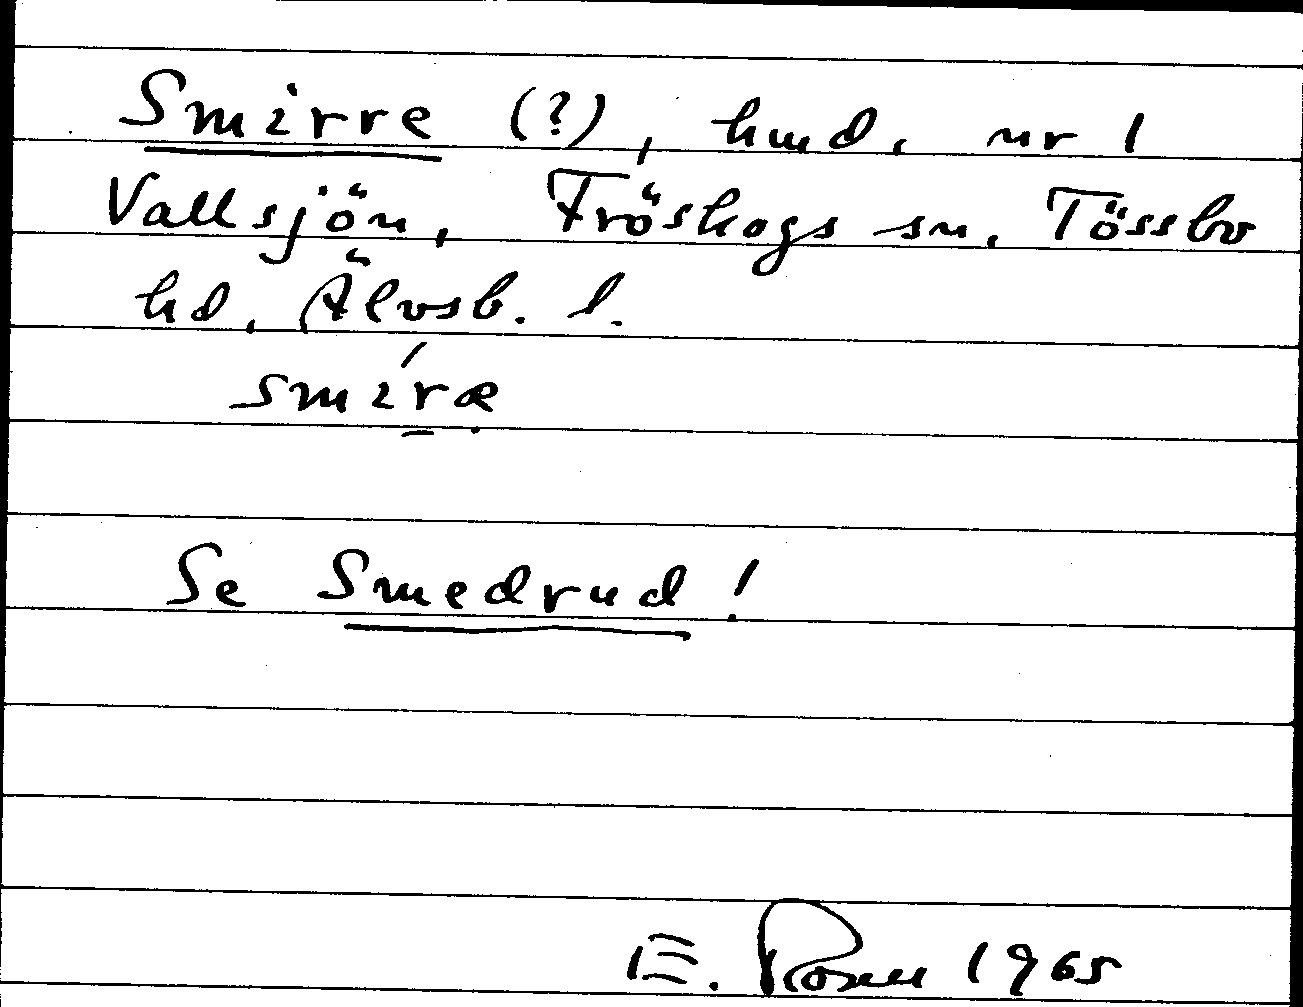 Smirre (?), hmd. nr 1
Vallsjön, Fröskogs sn. Tössbo
hd. Älvsb. l.
smi´ræ
Se Smedrud!
E. Rosen 1965